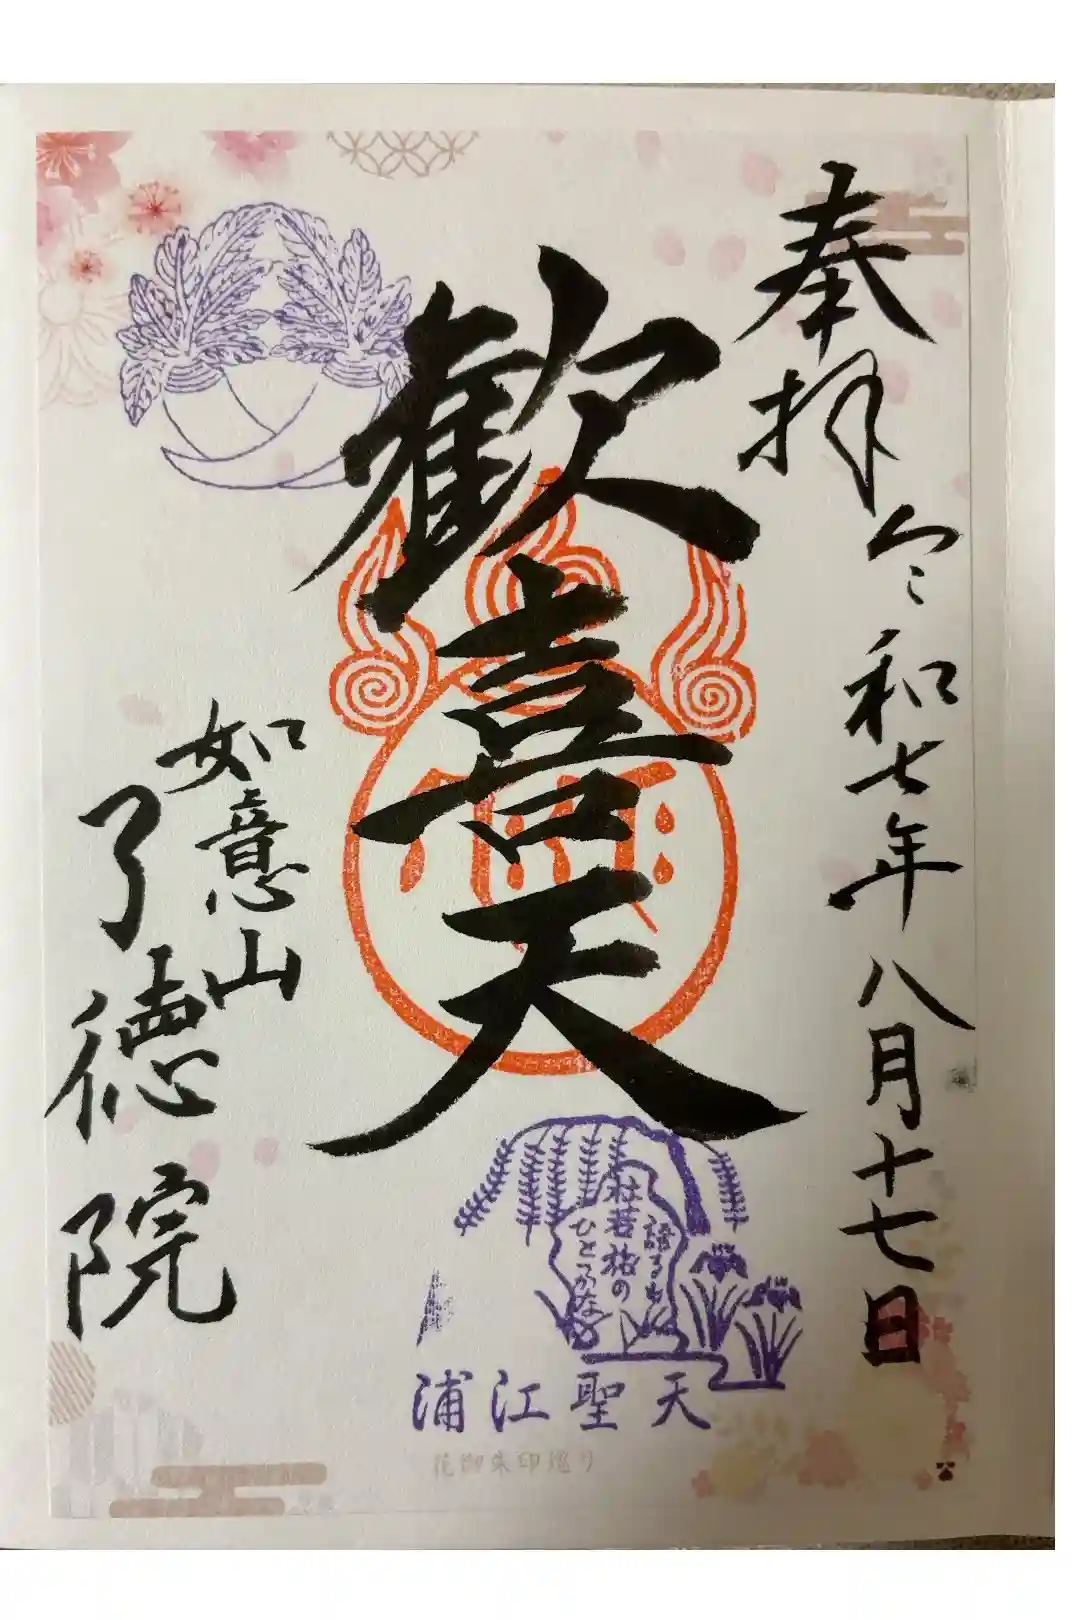 奉拝
令和七年八月十七日
歓喜天
如意山
了徳院
杜若
語るも旅の
ひとつかな
浦江聖天
花御朱印巡り